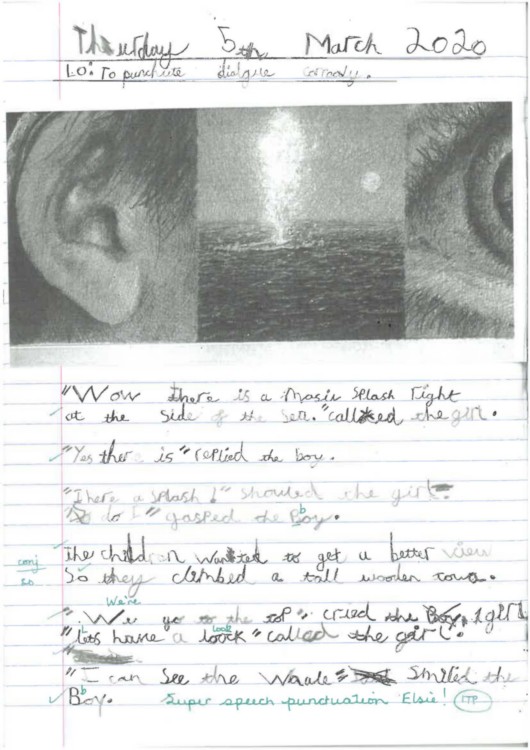 Thursday 5th March 2020
LO: To punctuate dialogue
"Wow there is a splash right
at the side of the sea." called the girl.
"Yes there is" replied the boy.
a splash!" shouted the girl
do I" gasped the Boy.
b
The children wanted to get a better view
conj
so
So they climbed a tall wooden towa.
We're
to the top" cried the girl
"lets have a look" called the girl.
look
"I can see the smiled the
b
Boy.
Super speech punctuation Elsie! ITP